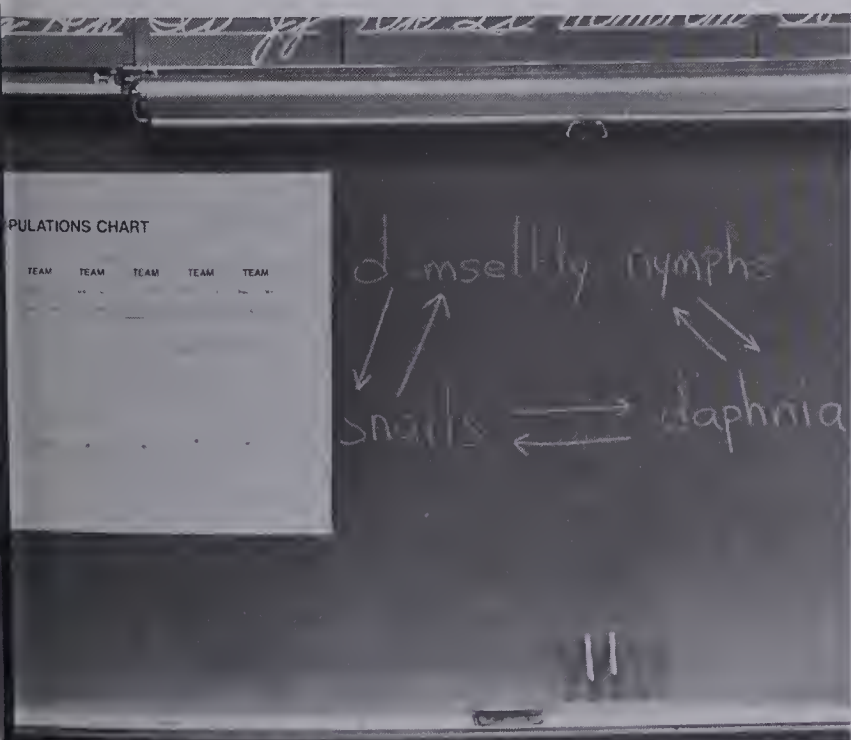 PULATIONS CHART
TEAM TEAM TEAM TEAM TEAM
d mselfly nymphs
snails daphnia